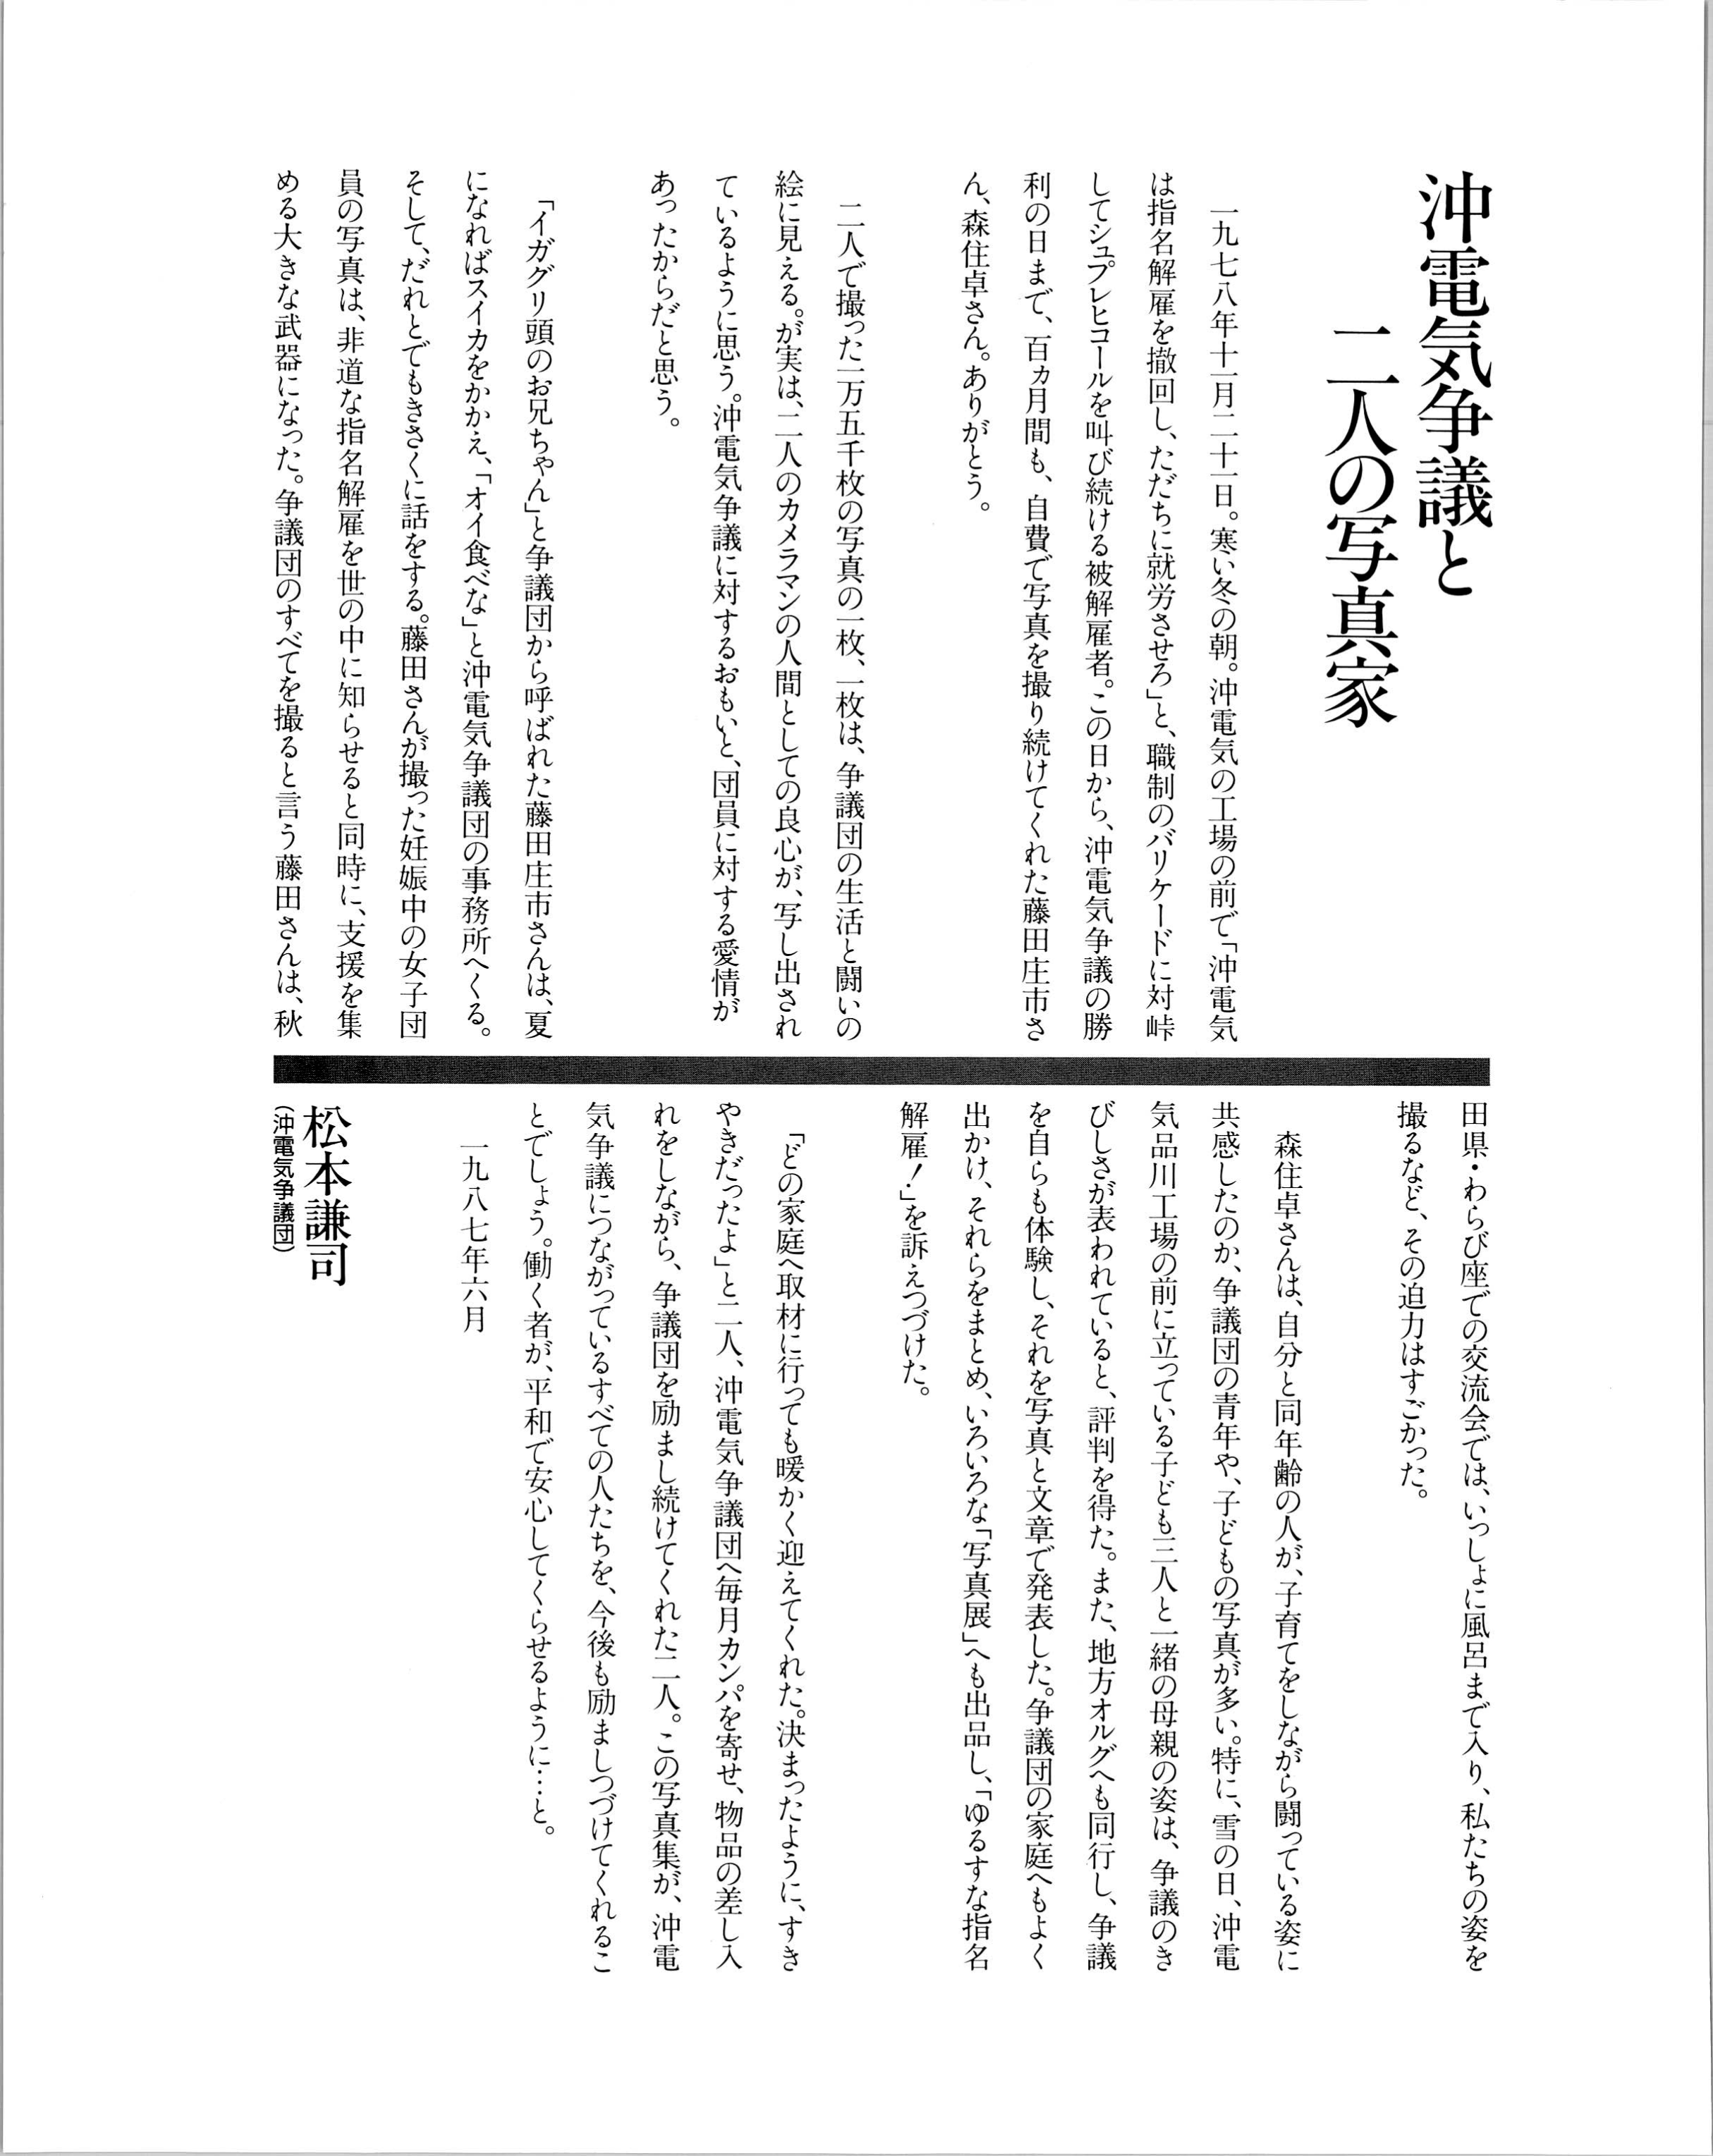 沖電気争議と
二人の写真家
一九七八年十一月二十一日。寒い冬の朝。沖電気の工場の前で「沖電気
は指名解雇を撤回し、ただちに就労させろ」と、職制のバリケードに対峙
してシュプレヒコールを叫び続ける被解雇者。この日から、沖電気争議の勝
利の日まで、百ヵ月間も、自費で写真を撮り続けてくれた藤田庄市さ
ん、森住卓さん。ありがとう。
二人で撮った一万五千枚の写真の一枚、一枚は、争議団の生活と闘いの
絵に見える。が実は、二人のカメラマンの人間としての良心が、写し出され
ているように思う。沖電気争議に対するおもいと、団員に対する愛情が
あったからだと思う。
「イガグリ頭のお兄ちゃん」と争議団から呼ばれた藤田庄市さんは、夏
になればスイカをかかえ、「オイ食べな」と沖電気争議団の事務所へくる。
そして、だれとでもきさくに話をする。藤田さんが撮った妊娠中の女子団
員の写真は、非道な指名解雇を世の中に知らせると同時に、支援を集
める大きな武器になった。争議団のすべてを撮ると言う藤田さんは、秋
田県・わらび座での交流会では、いっしょに風呂まで入り、私たちの姿を
撮るなど、その迫力はすごかった。
森住卓さんは、自分と同年齢の人が、子育てをしながら闘っている姿に
共感したのか、争議団の青年や、子どもの写真が多い。特に、雪の日、沖電
気品川工場の前に立っている子ども三人と一緒の母親の姿は、争議のき
びしさが表われていると、評判を得た。また、地方オルグへも同行し、争議
を自らも体験し、それを写真と文章で発表した。争議団の家庭へもよく
出かけ、それらをまとめ、いろいろな「写真展」へも出品し、「ゆるすな指名
解雇！」を訴えつづけた。
「どの家庭へ取材に行っても暖かく迎えてくれた。決まったように、すき
やきだったよ」と二人、沖電気争議団へ毎月カンパを寄せ、物品の差し入
れをしながら、争議団を励まし続けてくれた二人。この写真集が、沖電
気争議につながっているすべての人たちを、今後も励ましつづけてくれるこ
とでしょう。働く者が、平和で安心してくらせるように…と。
一九八七年六月
松本謙司
（沖電気争議団）